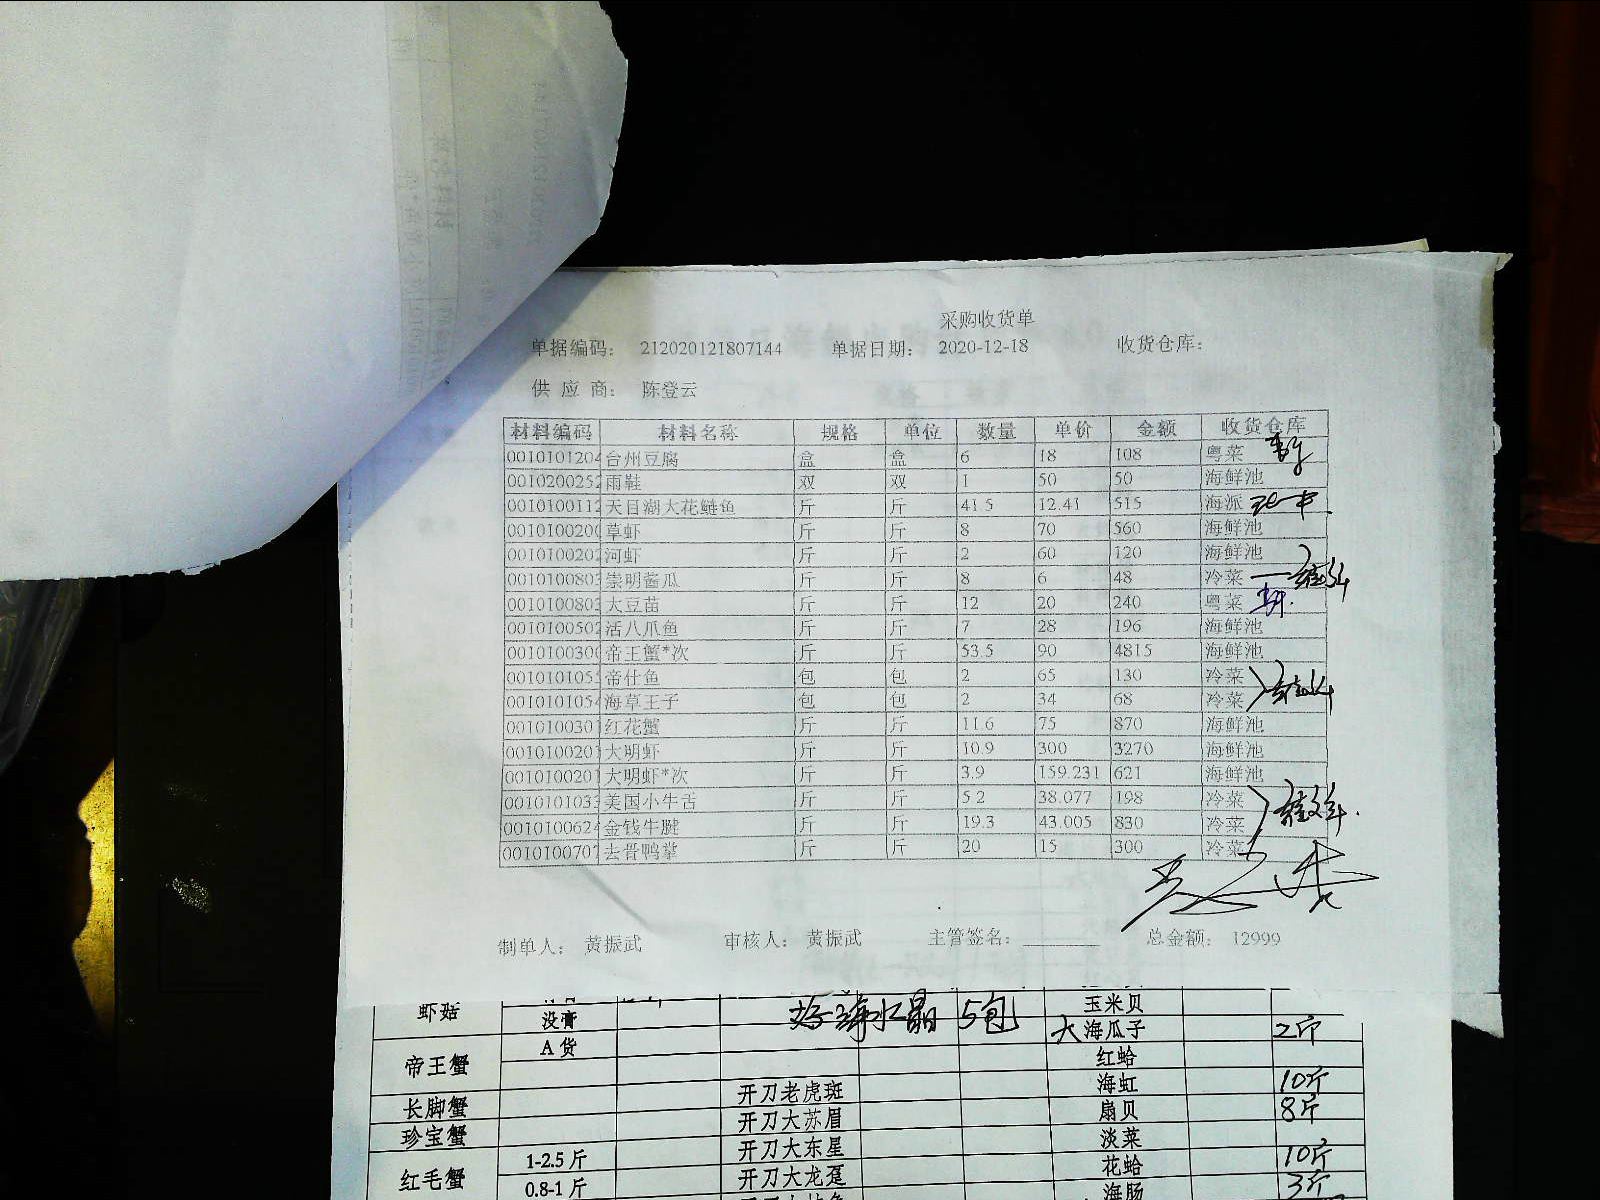 采购收货单
单据编码: 212020121807144 单据日期: 2020-12-18 收货仓库:
供应商: 陈登云
材料编码 材料名称 规格 单位 数量 单价 金额 收货仓库
0010101204 台州豆腐 盒 盒 6 18 108 粤菜
0010200252 雨鞋 双 双 1 50 50 海鲜池
0010100112 天目湖大花鲢鱼 斤 斤 41.5 12.41 515 海派
0010100200 草虾 斤 斤 8 70 560 海鲜池
0010100202 河虾 斤 斤 2 60 120 海鲜池
0010100803 崇明酱瓜 斤 斤 8 6 48 冷菜
0010100803 大豆苗 斤 斤 12 20 240 粤菜
0010100502 活八爪鱼 斤 斤 7 28 196 海鲜池
0010100300 帝王蟹*次 斤 斤 53.5 90 4815 海鲜池
0010101055 帝仕鱼 包 包 2 65 130 冷菜
0010101054 海草王子 包 包 2 34 68 冷菜
0010100301 红花蟹 斤 斤 11.6 75 870 海鲜池
0010100201 大明虾 斤 斤 10.9 300 3270 海鲜池
0010100201 大明虾*次 斤 斤 3.9 159.231 621 海鲜池
0010101033 美国小牛舌 斤 斤 5.2 38.077 198 冷菜
0010100624 金钱牛腱 斤 斤 19.3 43.005 830 冷菜
0010100707 去骨鸭掌 斤 斤 20 15 300 冷菜
制单人: 黄振武 审核人: 黄振武 主管签名: 总金额: 12999
虾菇 玉米贝
没膏 水晶 5包 大海瓜子 2斤
帝王蟹 A货 红蛤
开刀老虎斑 海虹 10斤
长脚蟹 开刀大苏眉 扇贝 8斤
珍宝蟹 开刀大东星 淡菜
红毛蟹 1-2.5斤 开刀大龙趸 花蛤 10斤
0.8-1斤 海肠 3斤